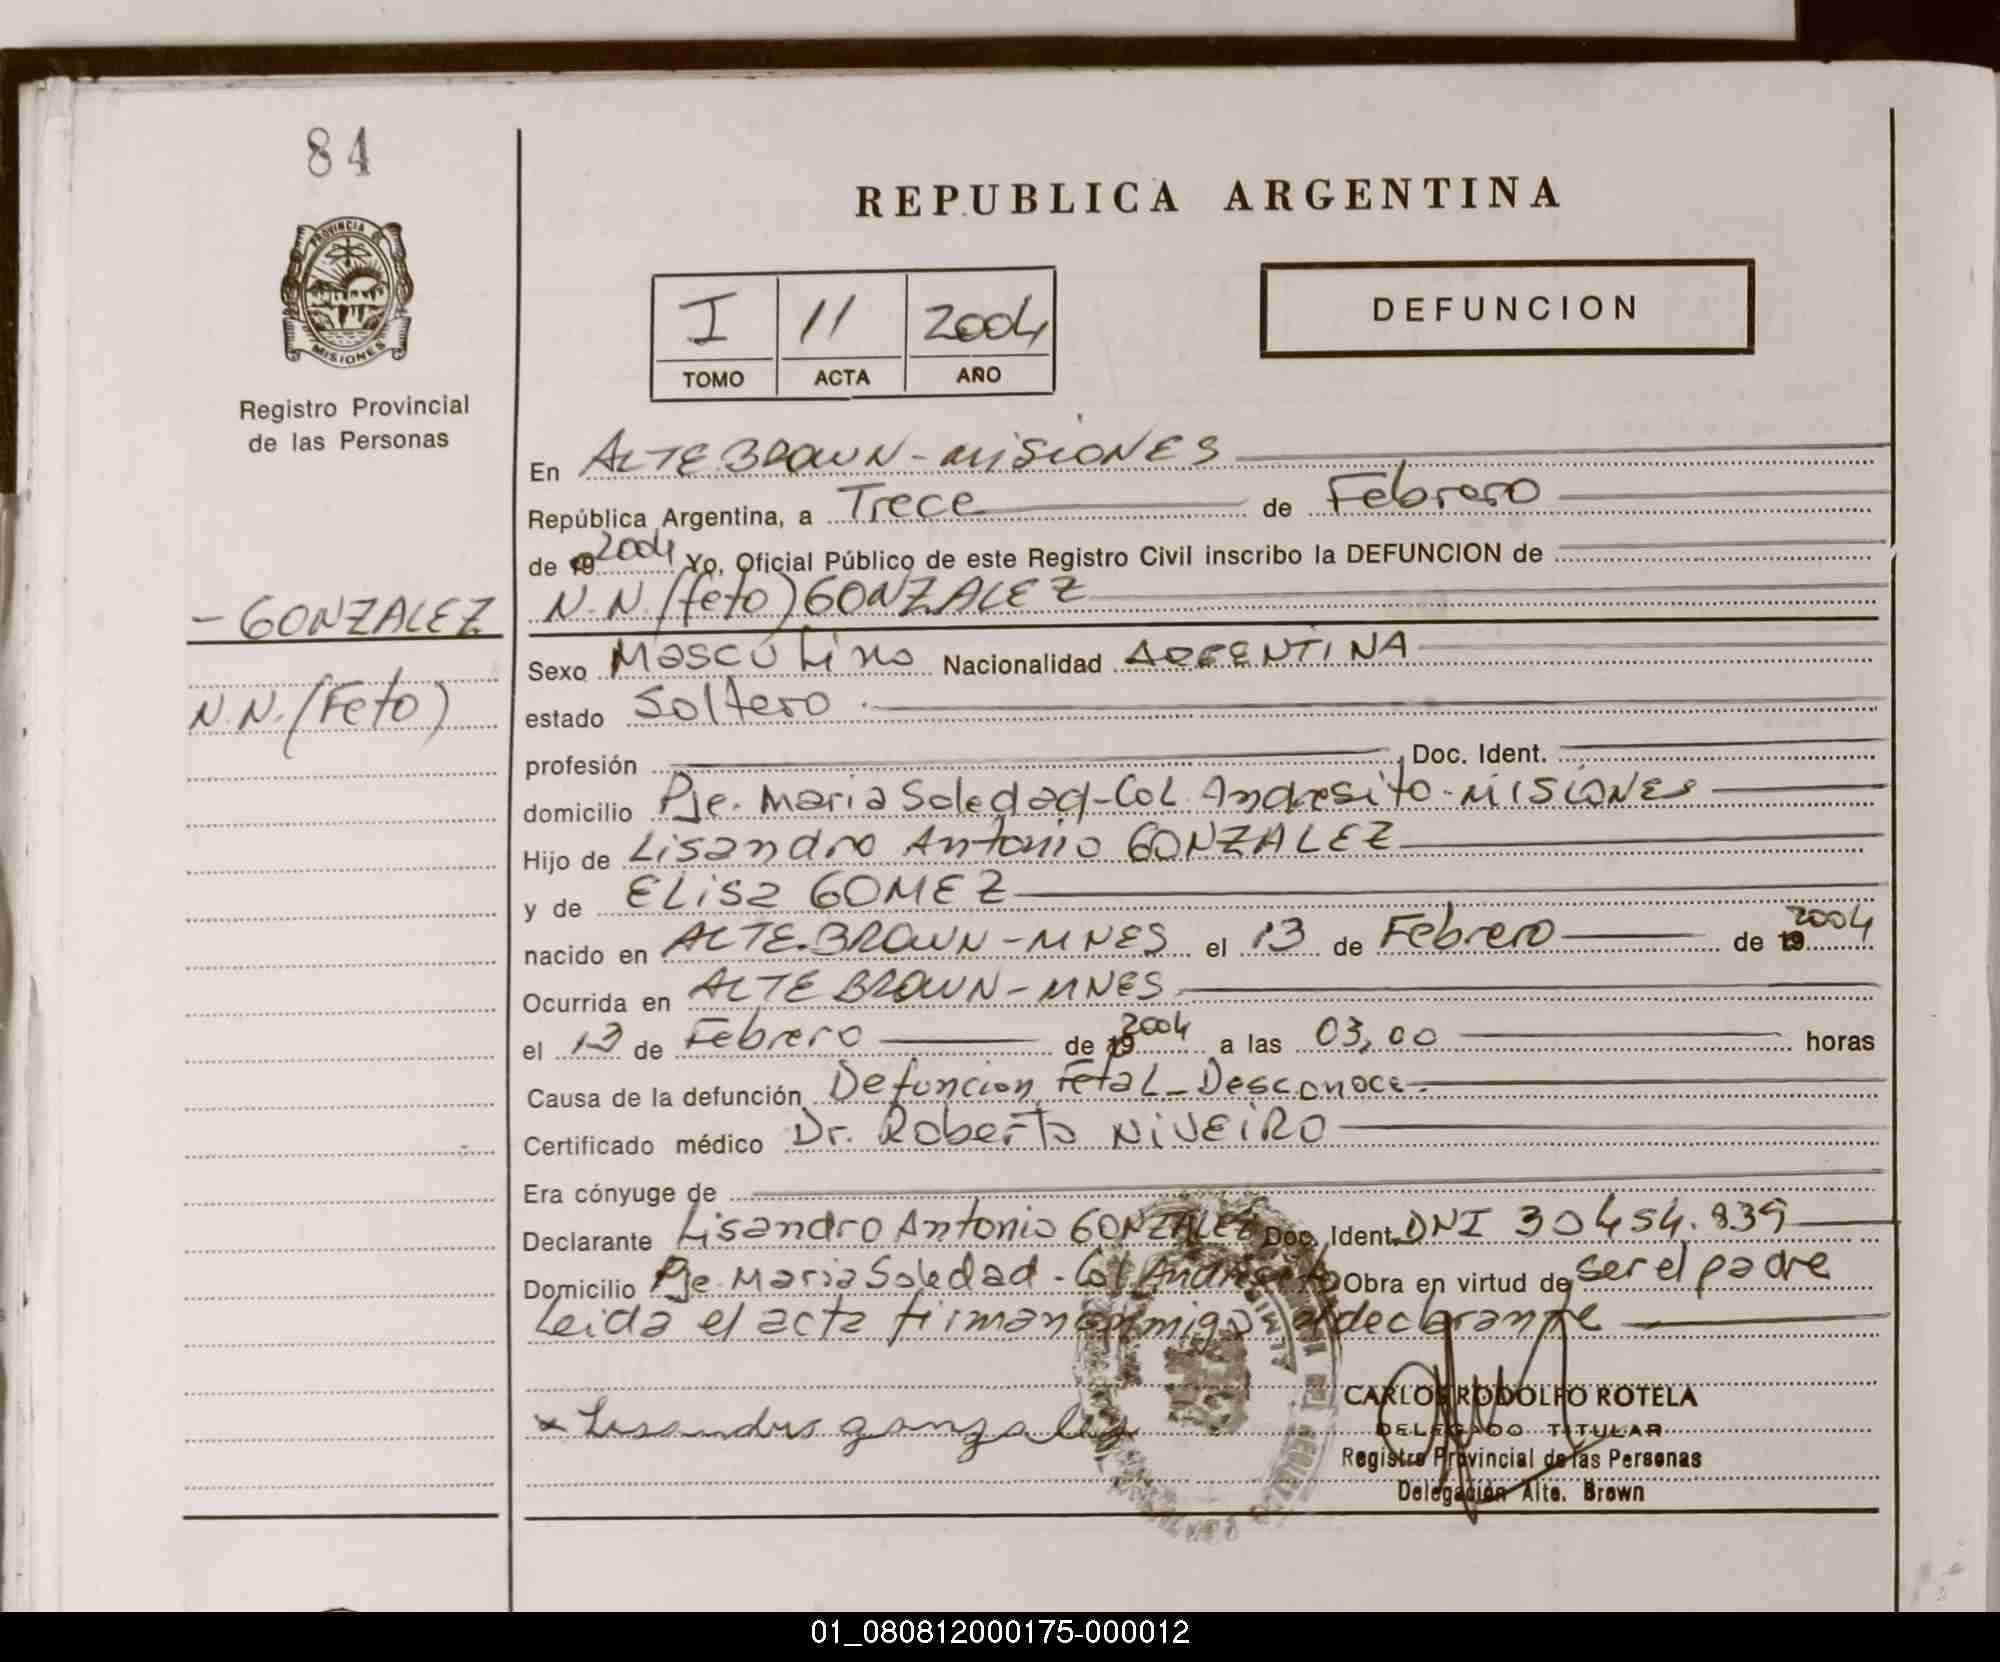 84
PROVINCIA DE
MISIONES
Registro Provincial
de las Personas
- GONZALEZ
N.N. (Feto)
REPUBLICA ARGENTINA
I 11 2004
TOMO ACTA AÑO
DEFUNCION
En ALTE BROWN - MISIONES
República Argentina, a Trece de Febrero
de 19 2004 Yo, Oficial Público de este Registro Civil inscribo la DEFUNCION de
N.N. (feto) GONZALEZ
Sexo Masculino Nacionalidad ARGENTINA
estado Soltero
profesión Doc. Ident.
domicilio Pje. Maria Soledad - Col. Andresito - MISIONES
Hijo de Lisandro Antonio GONZALEZ
y de ELisa GOMEZ
nacido en ALTE. BROWN - MNES el 13 de Febrero de 19 2004
Ocurrida en ALTE BROWN - MNES
el 13 de Febrero de 19 2004 a las 03,00 horas
Causa de la defunción Defuncion Fetal - Desconoce
Certificado médico Dr. Roberto NIVEIRO
Era cónyuge de
Declarante Lisandro Antonio GONZALEZ Doc. Ident. DNI 30454.839
Domicilio Pje Maria Soledad - Col Andresito Obra en virtud de ser el padre
Leida el acta firman conmigo el declarante
x Lisandro gonzalez
CARLOS RODOLFO ROTELA
DELEGADO TITULAR
Registro Provincial de las Personas
Delegación Alte. Brown
01_080812000175-000012